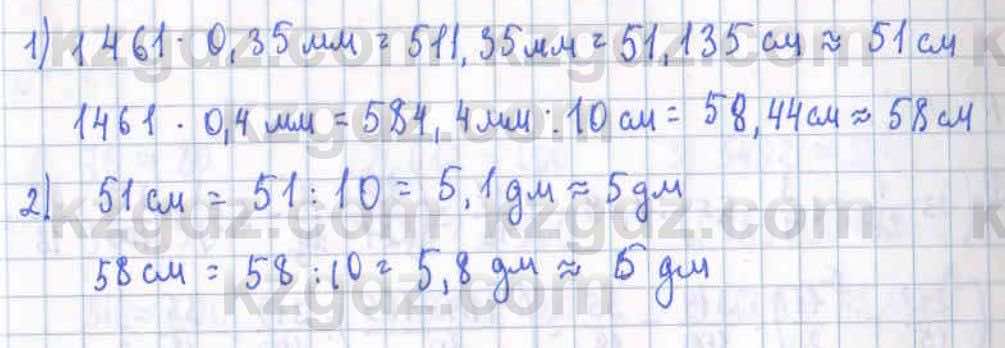 1) 1461 · 0,35 мм = 511,35 мм = 51,135 см ≈ 51 см
1461 · 0,4 мм = 584,4 мм : 10 см = 58,44 см ≈ 58 см
2) 51 см = 51 : 10 = 5,1 дм ≈ 5 дм
58 см = 58 : 10 = 5,8 дм ≈ 6 дм
kzgdz.com